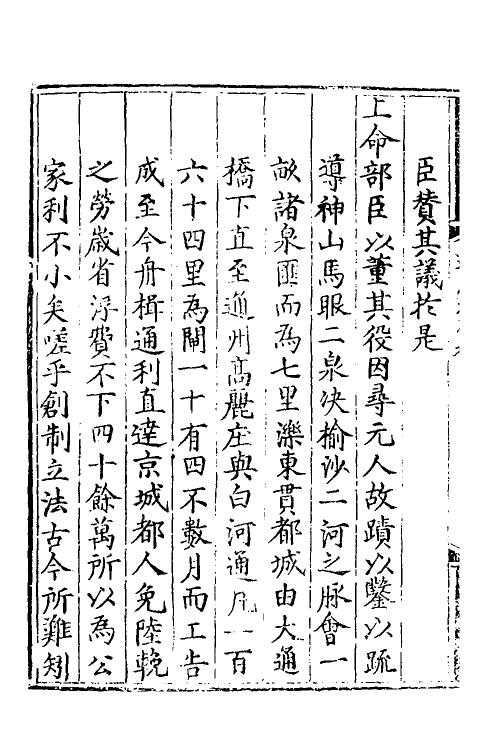 臣贊其議於是
上命部臣以董其役因尋元人故蹟以鑿以疏
導神山馬眼二泉决榆沙二河之脉會一
畝諸泉匯而為七里濼東貫都城由大通
橋下直至通州高麗庄與白河通凡一百
六十四里為閘一十有四不數月而工告
成至今舟楫通利直達京城都人免陸輓
之勞歲省浮費不下四十餘萬所以為公
家利不小矣嗟乎創制立法古今所難矧